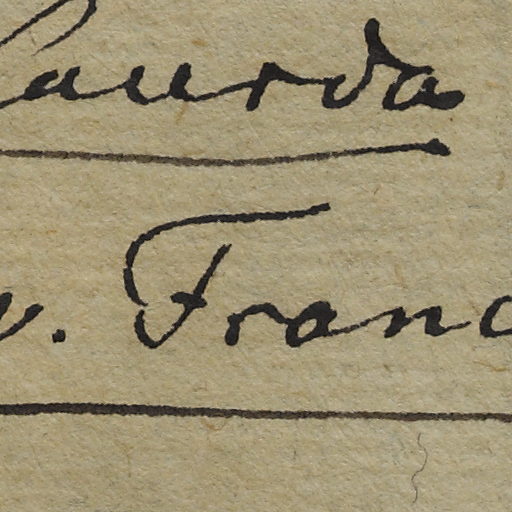 Laurda
v. Franc